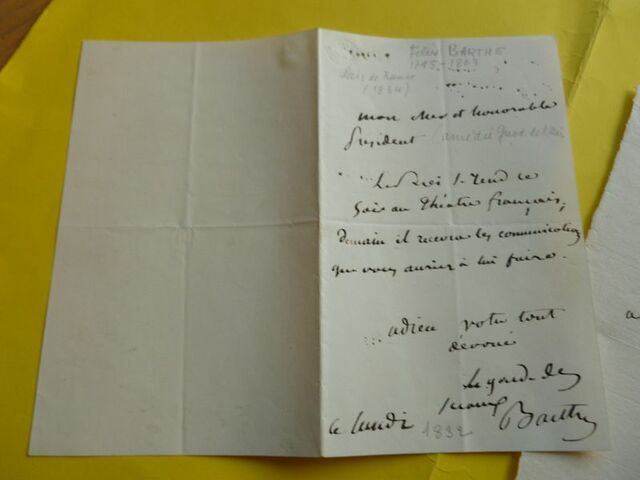 Felix BARTHE
1795-1863
(1834)
mon cher et honorable
président
Le Roi se rend ce
soir au théâtre français,
demain il recevra les communications
que vous auriez à lui faire.
adieu votre tout
dévoué
le garde des
sceaux
Barthe
ce lundi 1832